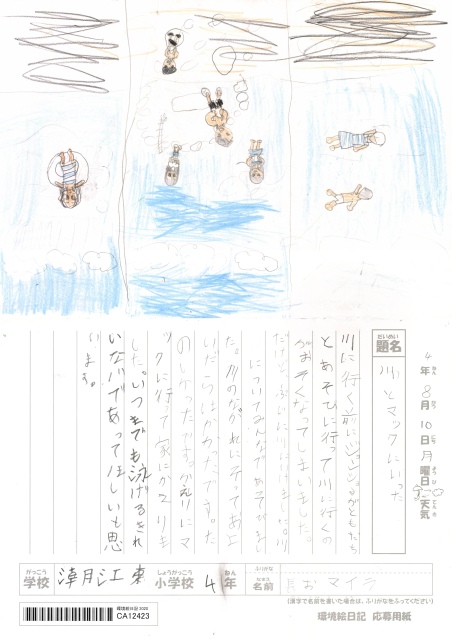 4年8月10日月曜日天気
ねん がつ にち ようび てんき
だいめい
題名
川とマックにいった
川に行く前に
がともだち
とあそびに行って川に行くの
がおそくなってしまいました。
だけど、ぶじに川にいけました。川
についてみんなであそびまし
た。川のながれにそっておよ
いだらはやかったです。た
のしかったです。かえりにマ
ックに行って家にかえりま
した。いつまでも泳げるきれ
いな川であってほしいと思
います。
がっこう
学校
東
しょうがっこう
小学校
4
ねん
年
ふりがな
なまえ
名前
マイラ
(漢字で名前を書いた場合は、ふりがなをふってください)
環境絵日記 2020
CA12423
環境絵日記 応募用紙